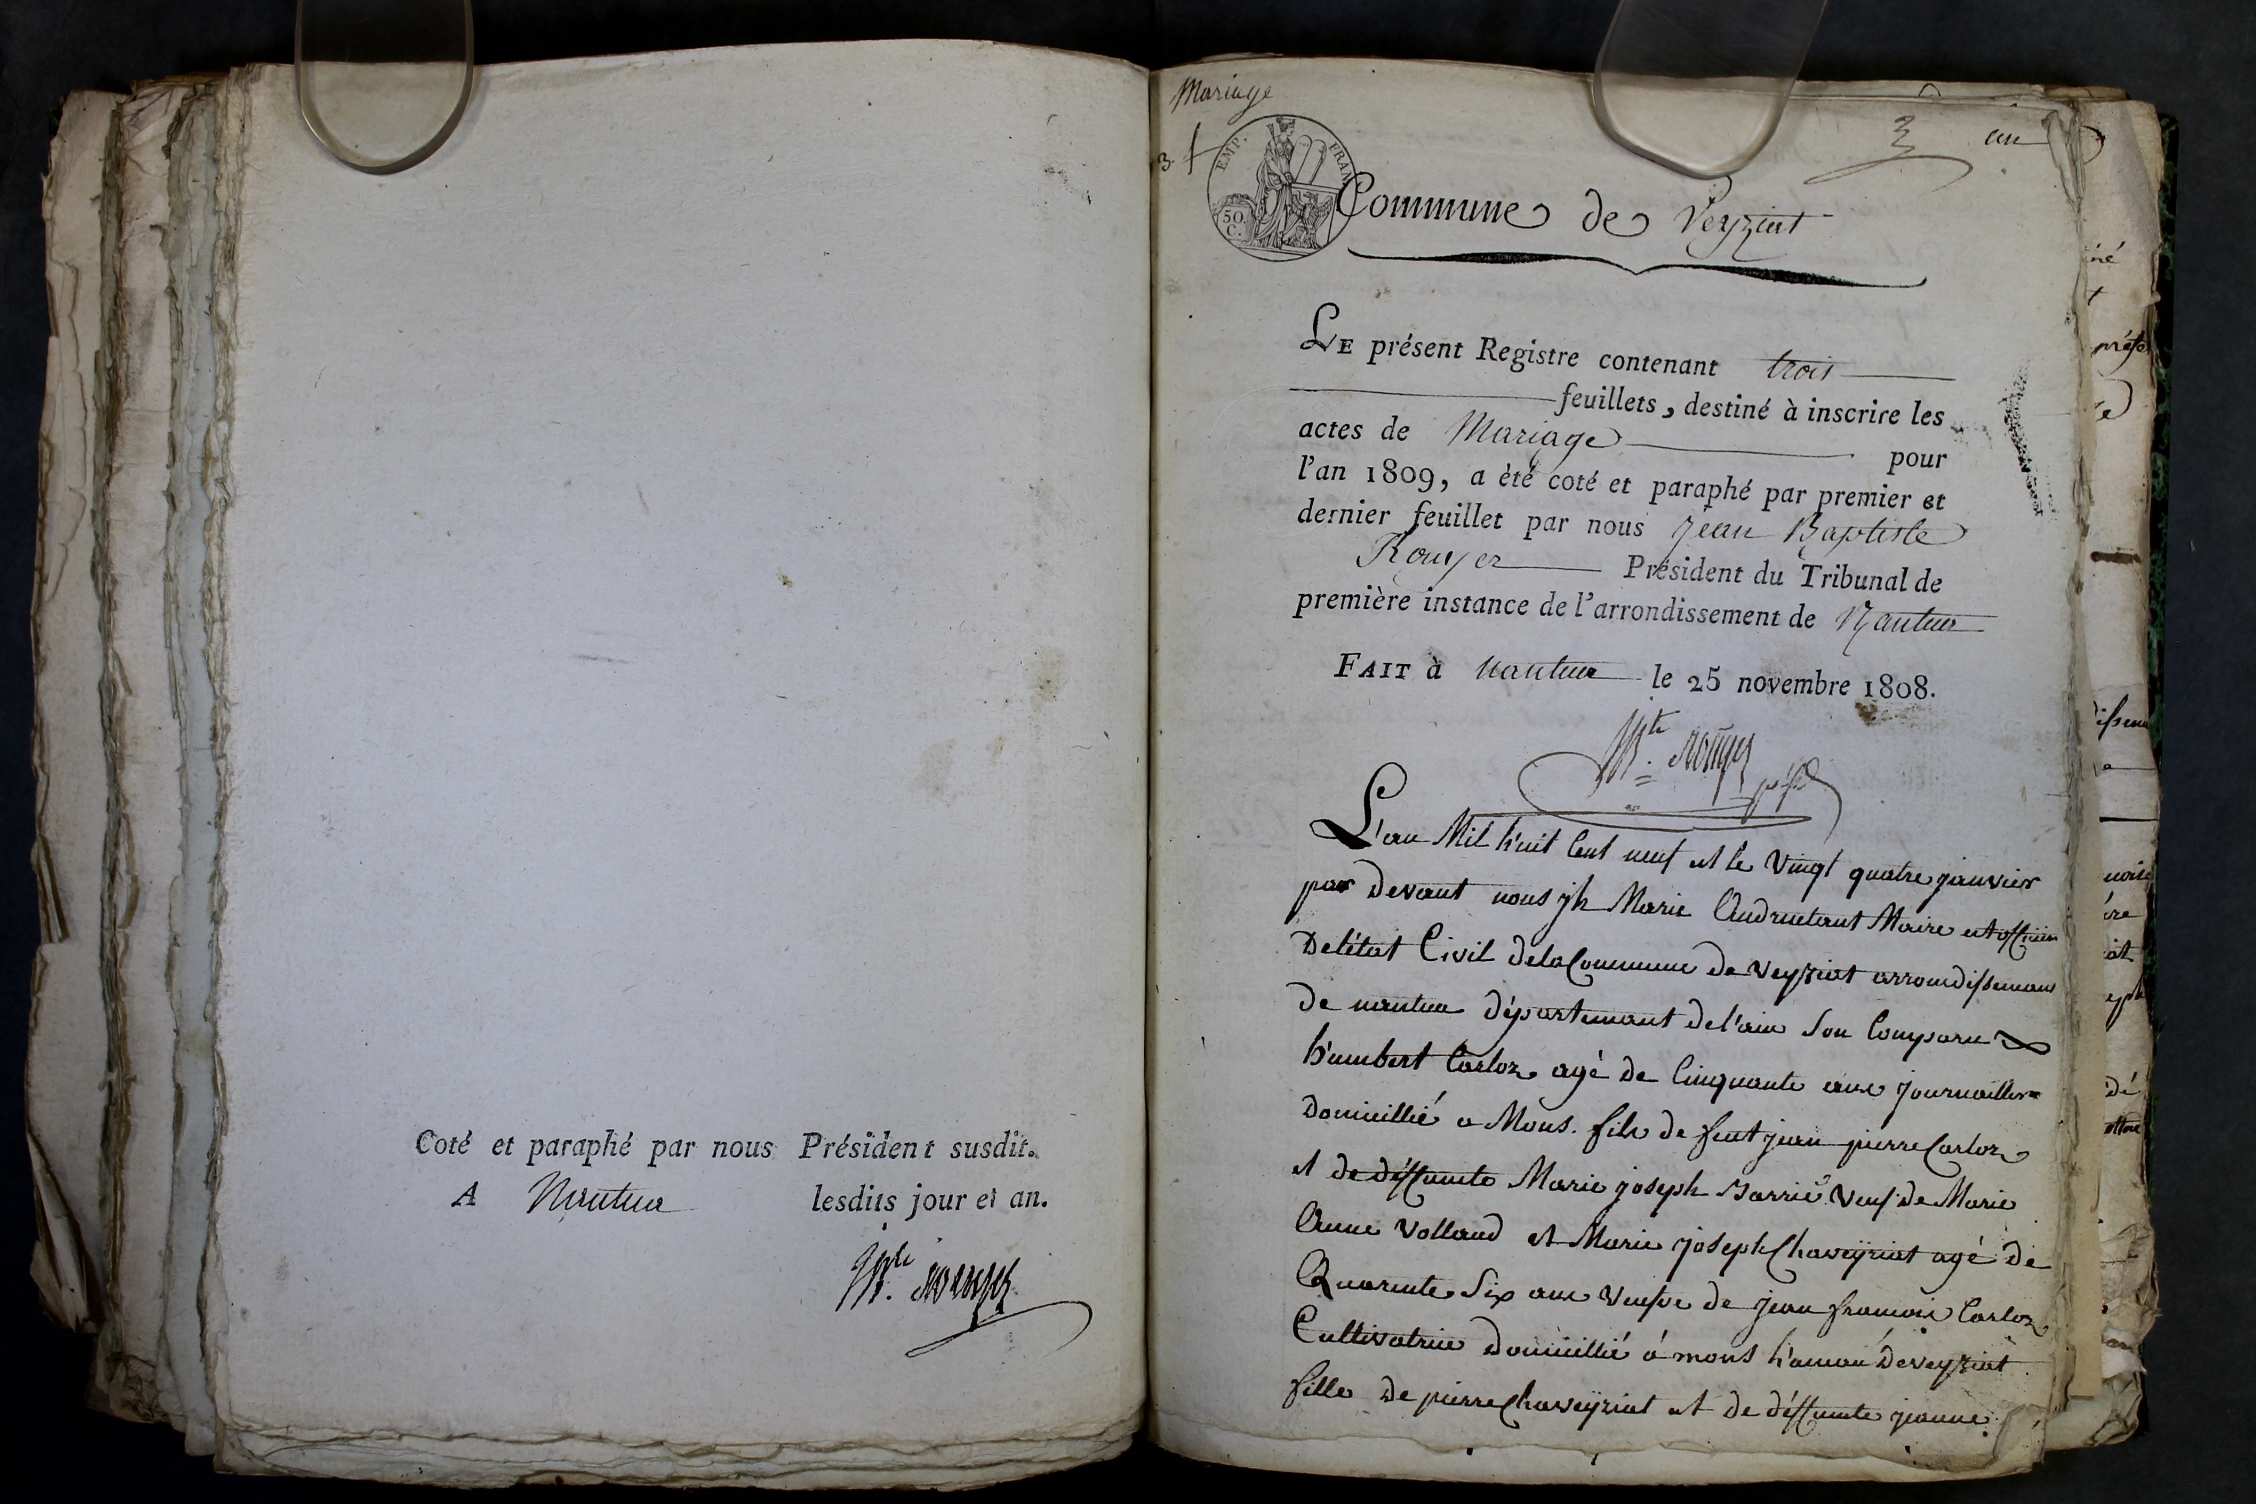 Coté et paraphé par nous Président susdit.
A Nantua lesdits jour et an.
JBte Rouyer
Mariage
3. f
EMP. FRAN.
50 C.
3 un
Commune de Veyziat
LE présent Registre contenant trois
feuillets, destiné à inscrire les
actes de Mariage pour
l'an 1809, a été coté et paraphé par premier et
dernier feuillet par nous Jean Baptiste
Rouyer Président du Tribunal de
première instance de l'arrondissement de Nantua
FAIT à Nantua le 25 novembre 1808.
JBte Rouyer
L'an Mil huit Cent neuf et le Vingt quatre janvier
par devant nous jh Marie Maire et officier
De létat Civil dela Commune de Veyziat arrondissemans
de nantua département de l'ain Son Comparu
humbert Carloz agé de Cinquante ans journaillier
Domicillié a Mons. fils de feut jean pierre Carloz
et de déffunte Marie joseph Veuf de Marie
Anne Volland et Marie joseph Chaveyriat agé de
Quarente Six ans Veufve de jean francois Carloz
Cultivatrice Domicillié á mons hamau de veyziat
fille de pierre Chaveyriat et de déffunte jeanne